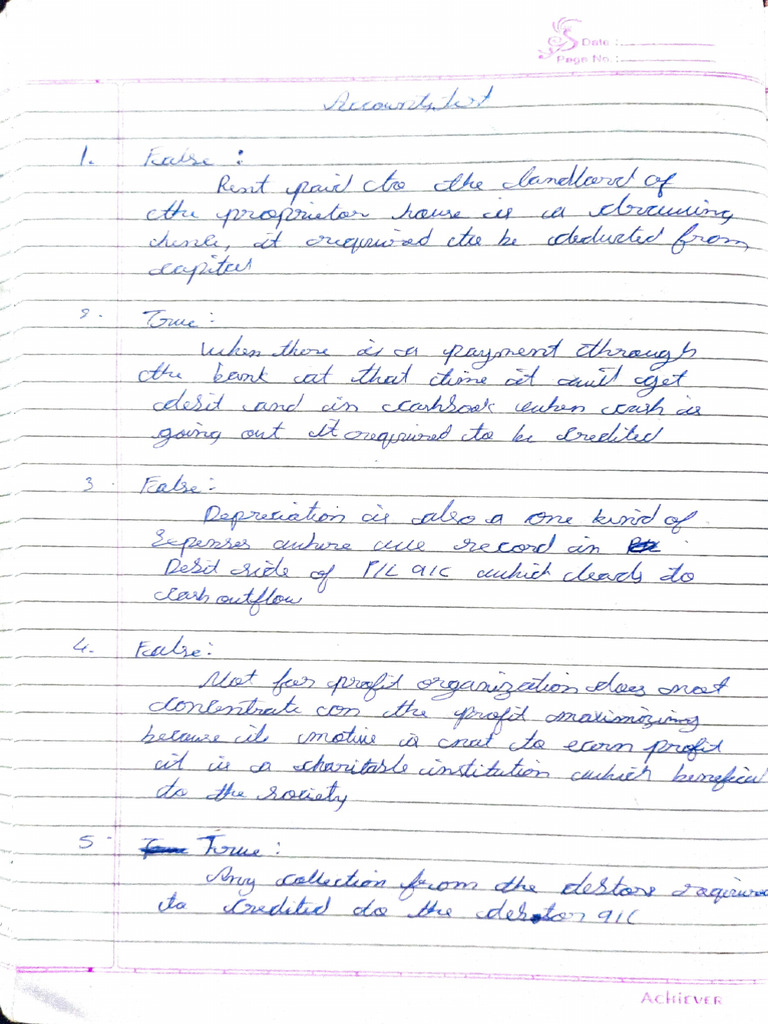 Date :
Page No. :
Accounts test
1. False :
Rent paid to the landlord of
the proprietor house is a drawing,
hence, it required to be deducted from
capital
2. True :
When there is a payment through
the bank at that time it will get
debit and in cashbook when cash is
going out it required to be credited
3. False :
Depreciation is also a one kind of
Expenses where we record in
Debit side of P/L a/c which leads to
cash outflow
4. False :
Not for profit organization does not
concentrate on the profit maximizing
because its motive is not to earn profit
it is a charitable institution which benefical
to the society
5. True :
Any collection from the debtors required
to credited to the debtor a/c
ACHIEVER